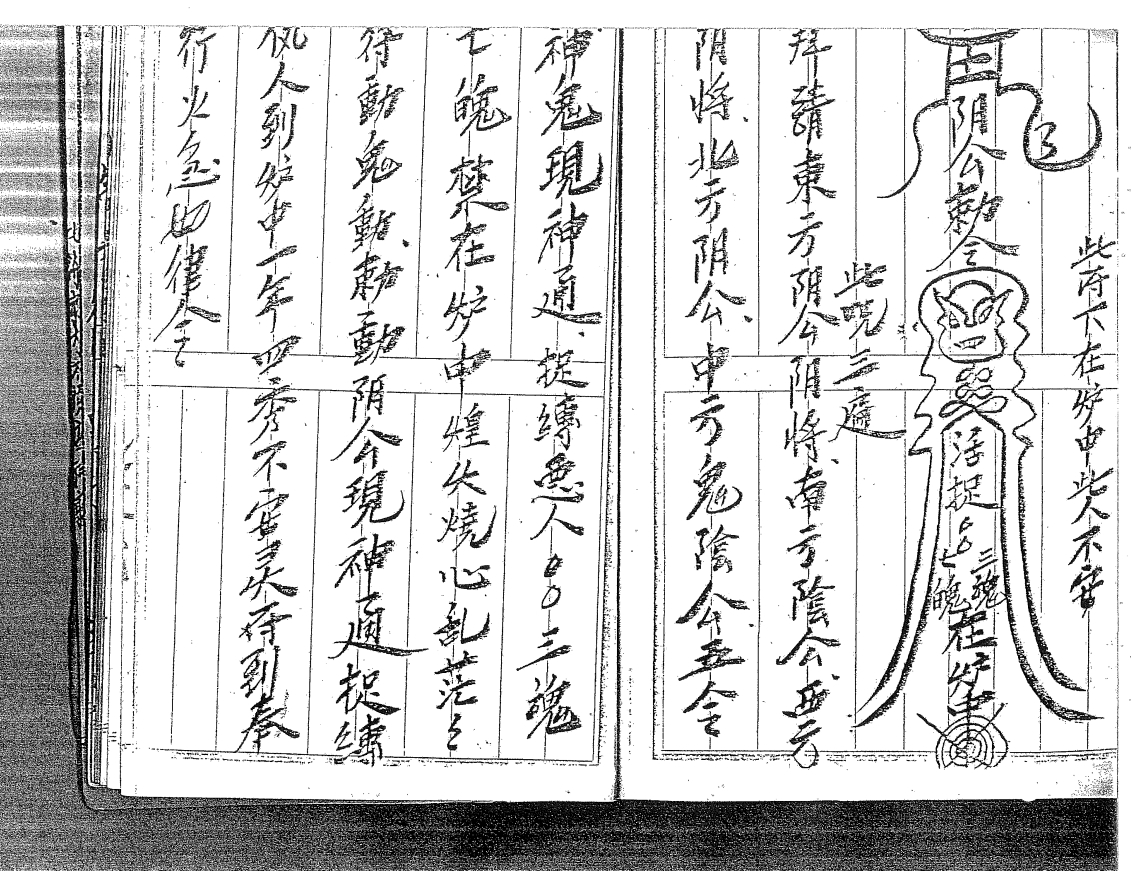 此符下在炉中此人不安
阴公勅令
活捉
三魂
七魄
在炉中
此咒三遍
拜請東方阴公阴将南方陰公西方
阴将北方阴公中方鬼陰公五令
神鬼現神通捉縛惡人〇〇三魂
七魄禁在炉中煌火燒心乱茫々
符動鬼動勅動阴公現神通捉縛
仇人到炉中一年四季不安灵符到奉
行火急如律令々